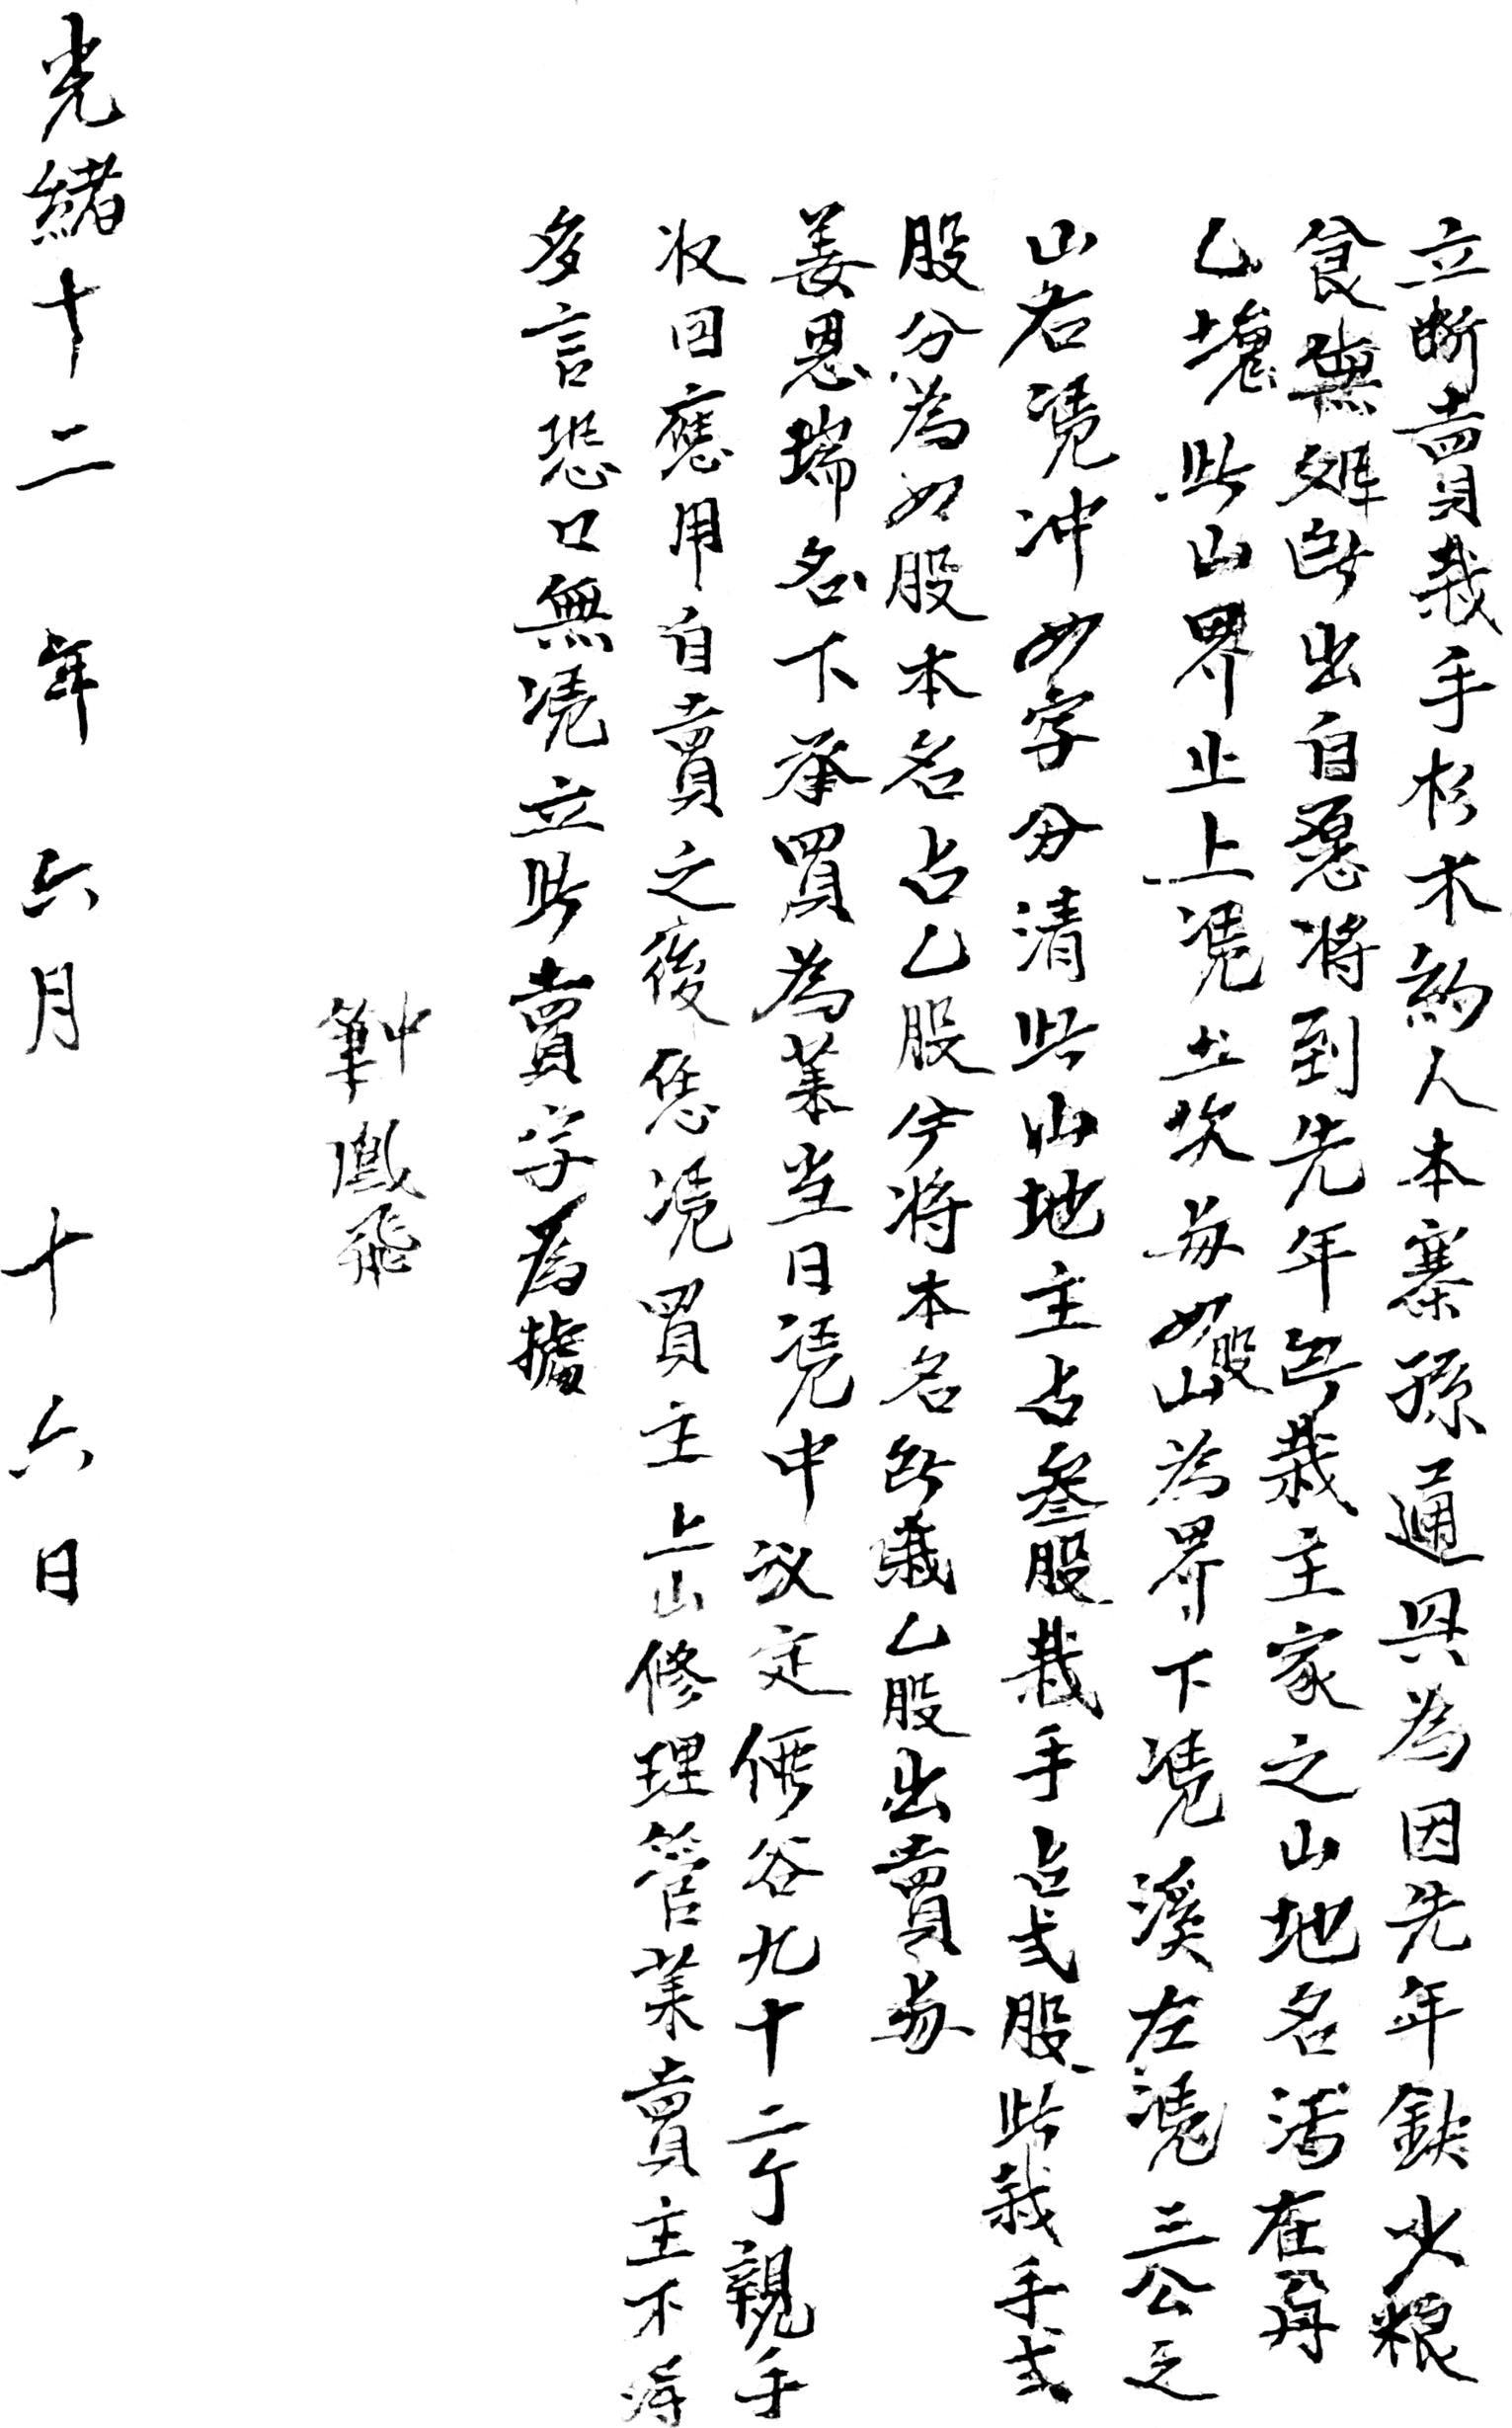 立断賣栽手杉木約人本寨孫通興為因先年缺少粮
食無処所出自愿將到先年所栽主家之山地名汚在冉
乙塊此山界止上凴土坎与四股山為界下凴溪左凴三公之
山右凴冲四字分清此山地主占叁股栽手占弍股此栽手弍
股分為四股本名占乙股今將本名所栽乙股出賣与
姜恩瑞名下承買為業当日凴中议定價谷九十二斤親手
收回應用自賣之後恁凴買主上山修理管業賣主不得
多言恐口無凴立此賣字為據
中
筆 鳳飛
光緒十二年六月十六日